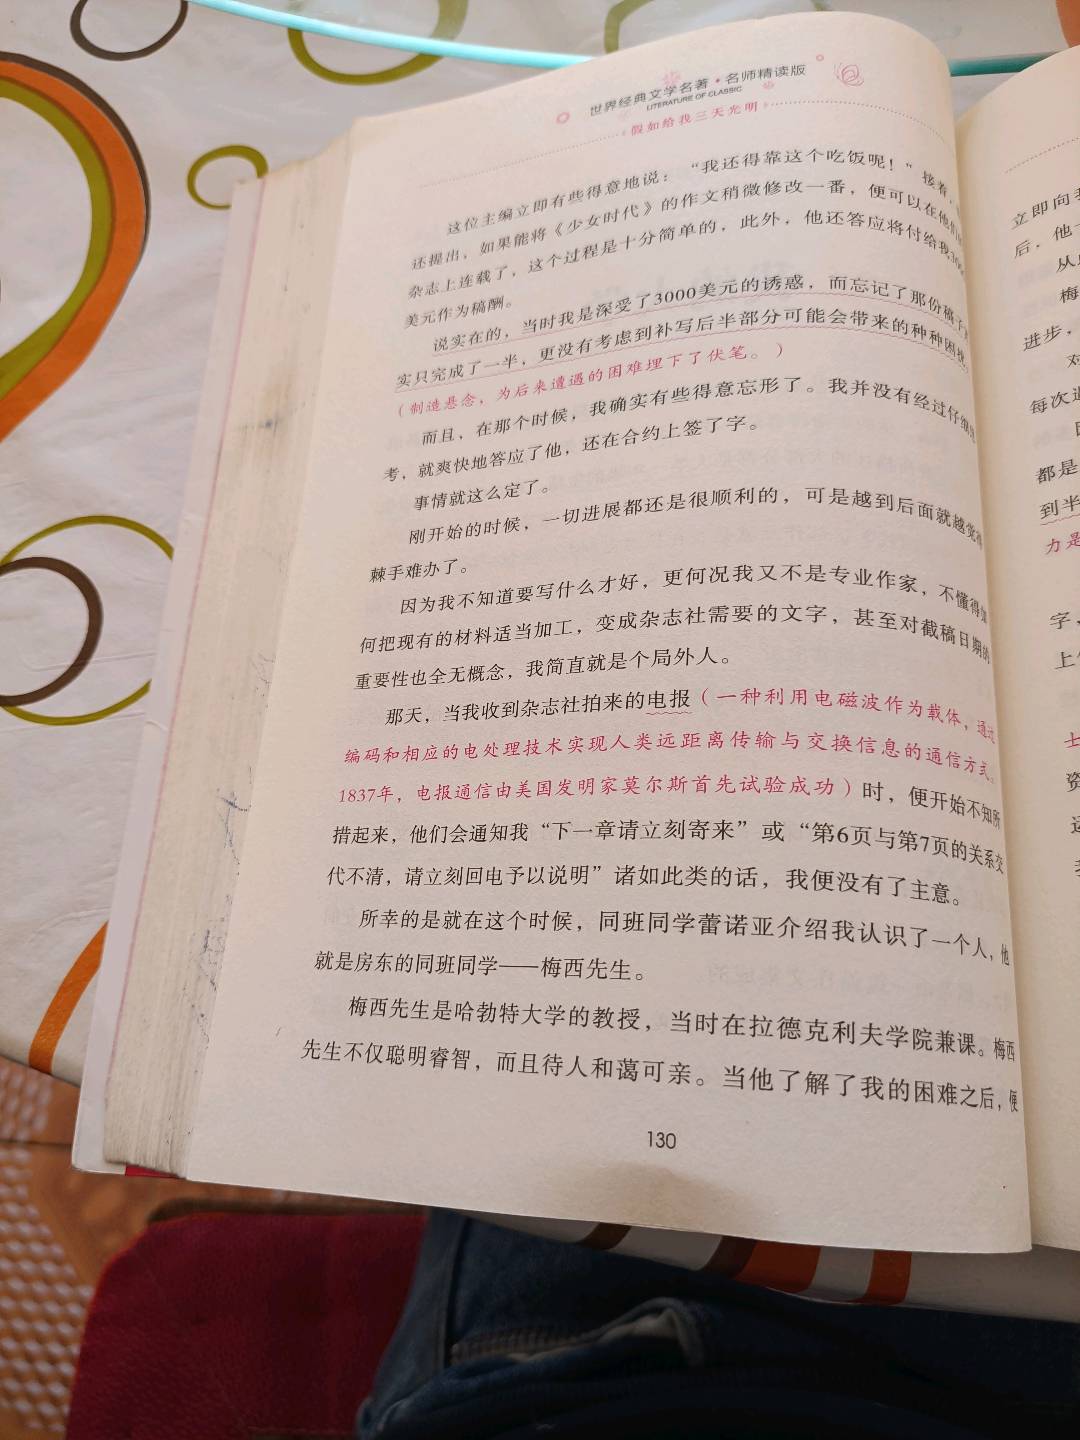 世界经典文学名著·名师精读版
LITERATURE OF CLASSIC
假如给我三天光明
这位主编立即有些得意地说：“我还得靠这个吃饭呢！”接着，
还提出，如果能将《少女时代》的作文稍微修改一番，便可以在他们
杂志上连载了，这个过程是十分简单的，此外，他还答应将付给我3000
美元作为稿酬。
说实在的，当时我是深受了3000美元的诱惑，而忘记了那份稿子
实只完成了一半，更没有考虑到补写后半部分可能会带来的种种困扰。
（制造悬念，为后来遭遇的困难埋下了伏笔。）
而且，在那个时候，我确实有些得意忘形了。我并没有经过仔细
考，就爽快地答应了他，还在合约上签了字。
事情就这么定了。
刚开始的时候，一切进展都还是很顺利的，可是越到后面就越觉得
棘手难办了。
因为我不知道要写什么才好，更何况我又不是专业作家，不懂得如
何把现有的材料适当加工，变成杂志社需要的文字，甚至对截稿日期的
重要性也全无概念，我简直就是个局外人。
那天，当我收到杂志社拍来的电报（一种利用电磁波作为载体，通过
编码和相应的电处理技术实现人类远距离传输与交换信息的通信方式。
1837年，电报通信由美国发明家莫尔斯首先试验成功）时，便开始不知所
措起来，他们会通知我“下一章请立刻寄来”或“第6页与第7页的关系交
代不清，请立刻回电予以说明”诸如此类的话，我便没有了主意。
所幸的是就在这个时候，同班同学蕾诺亚介绍我认识了一个人，他
就是房东的同班同学——梅西先生。
梅西先生是哈勃特大学的教授，当时在拉德克利夫学院兼课。梅西
先生不仅聪明睿智，而且待人和蔼可亲。当他了解了我的困难之后，便
130
立即向
后，他
从
梅
进步，
对
每次
都是
到半
力是
字，
上
士
资